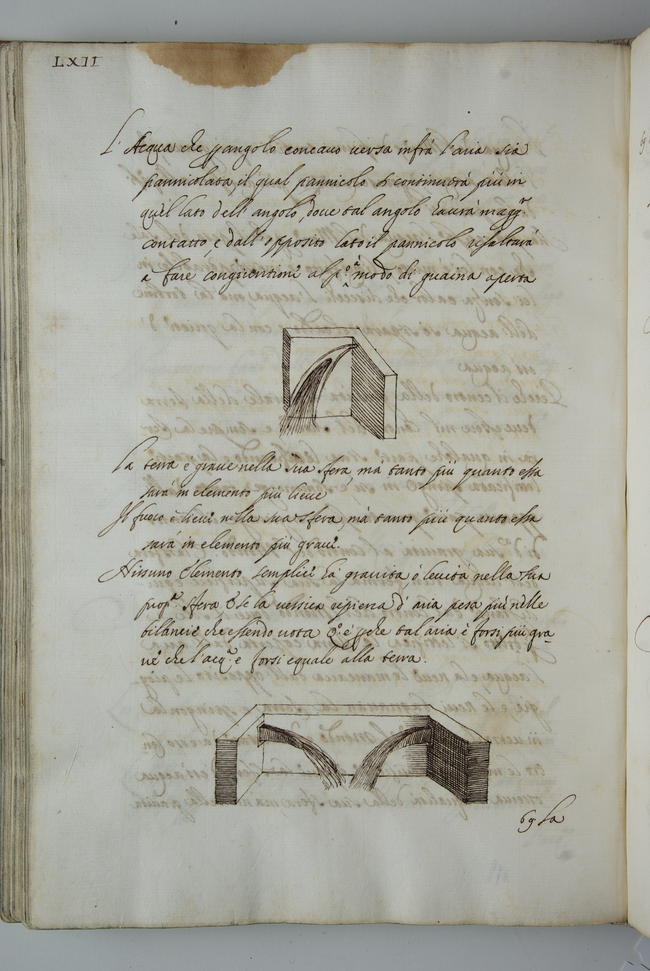 LXII
L'Acqua che p angolo concavo versa infrà l'aria sia
pannicolata, il qual pannicolo si continuerà più in
quel lato dell'angolo, dove tal angolo havrà magg.r
contatto, e dall'opposito lato il pannicolo risaltarà
a fare congiuntione al p.o à modo di guaina aperta
La terra è grave nella sua sfera, mà tanto più quanto essa
sarà in elemento più lieve
Il fuoco è lieve nella sua sfera, mà tanto più quanto esso
sarà in elemento più grave.
Nissuno Elemento semplice hà gravità, ò levità nella sua
prop.a sfera & se la vessica ripiena d'aria pesa più nelle
bilancie che essendo vota q.o è pche tal aria è forsi più gra-
ve che l'acq.a e forsi equale alla terra.
69 La